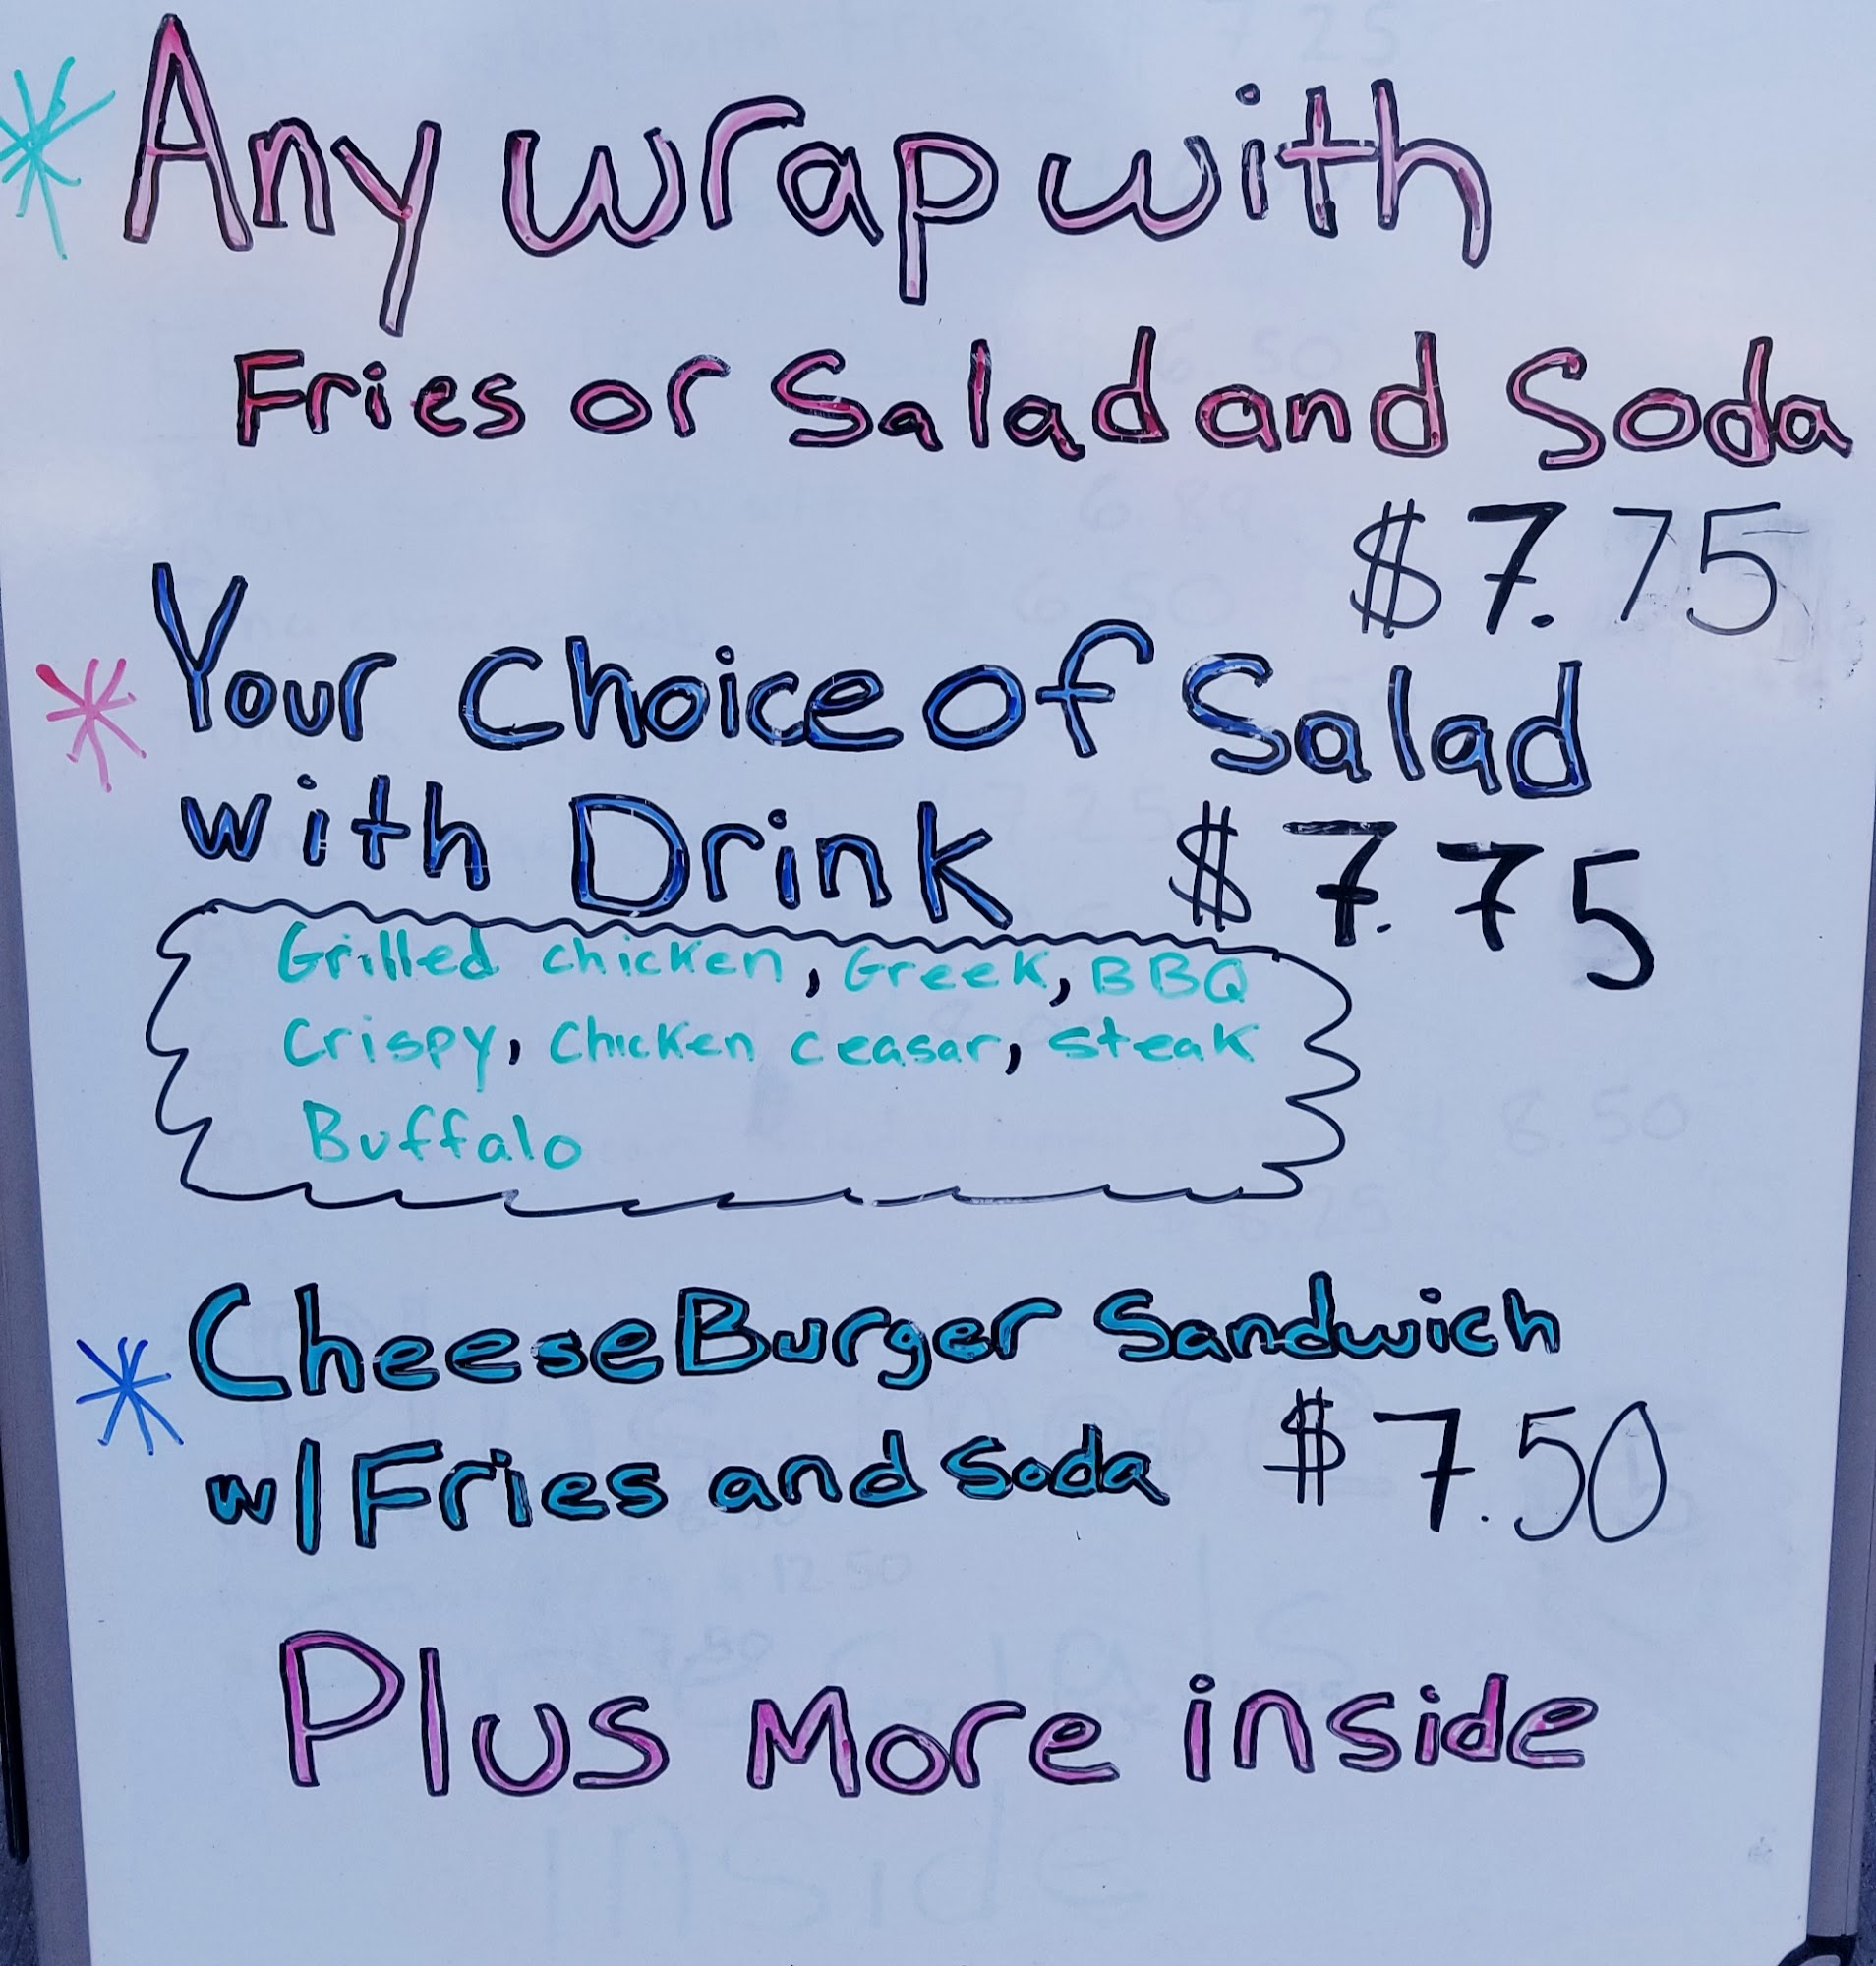 * Any wrap with
Fries or Salad and Soda
$7.75
* Your Choice of Salad
with Drink $7.75
Grilled chicken, Greek, BBQ
Crispy, Chicken ceasar, steak
Buffalo
* CheeseBurger Sandwich
w/ Fries and Soda $7.50
Plus More inside